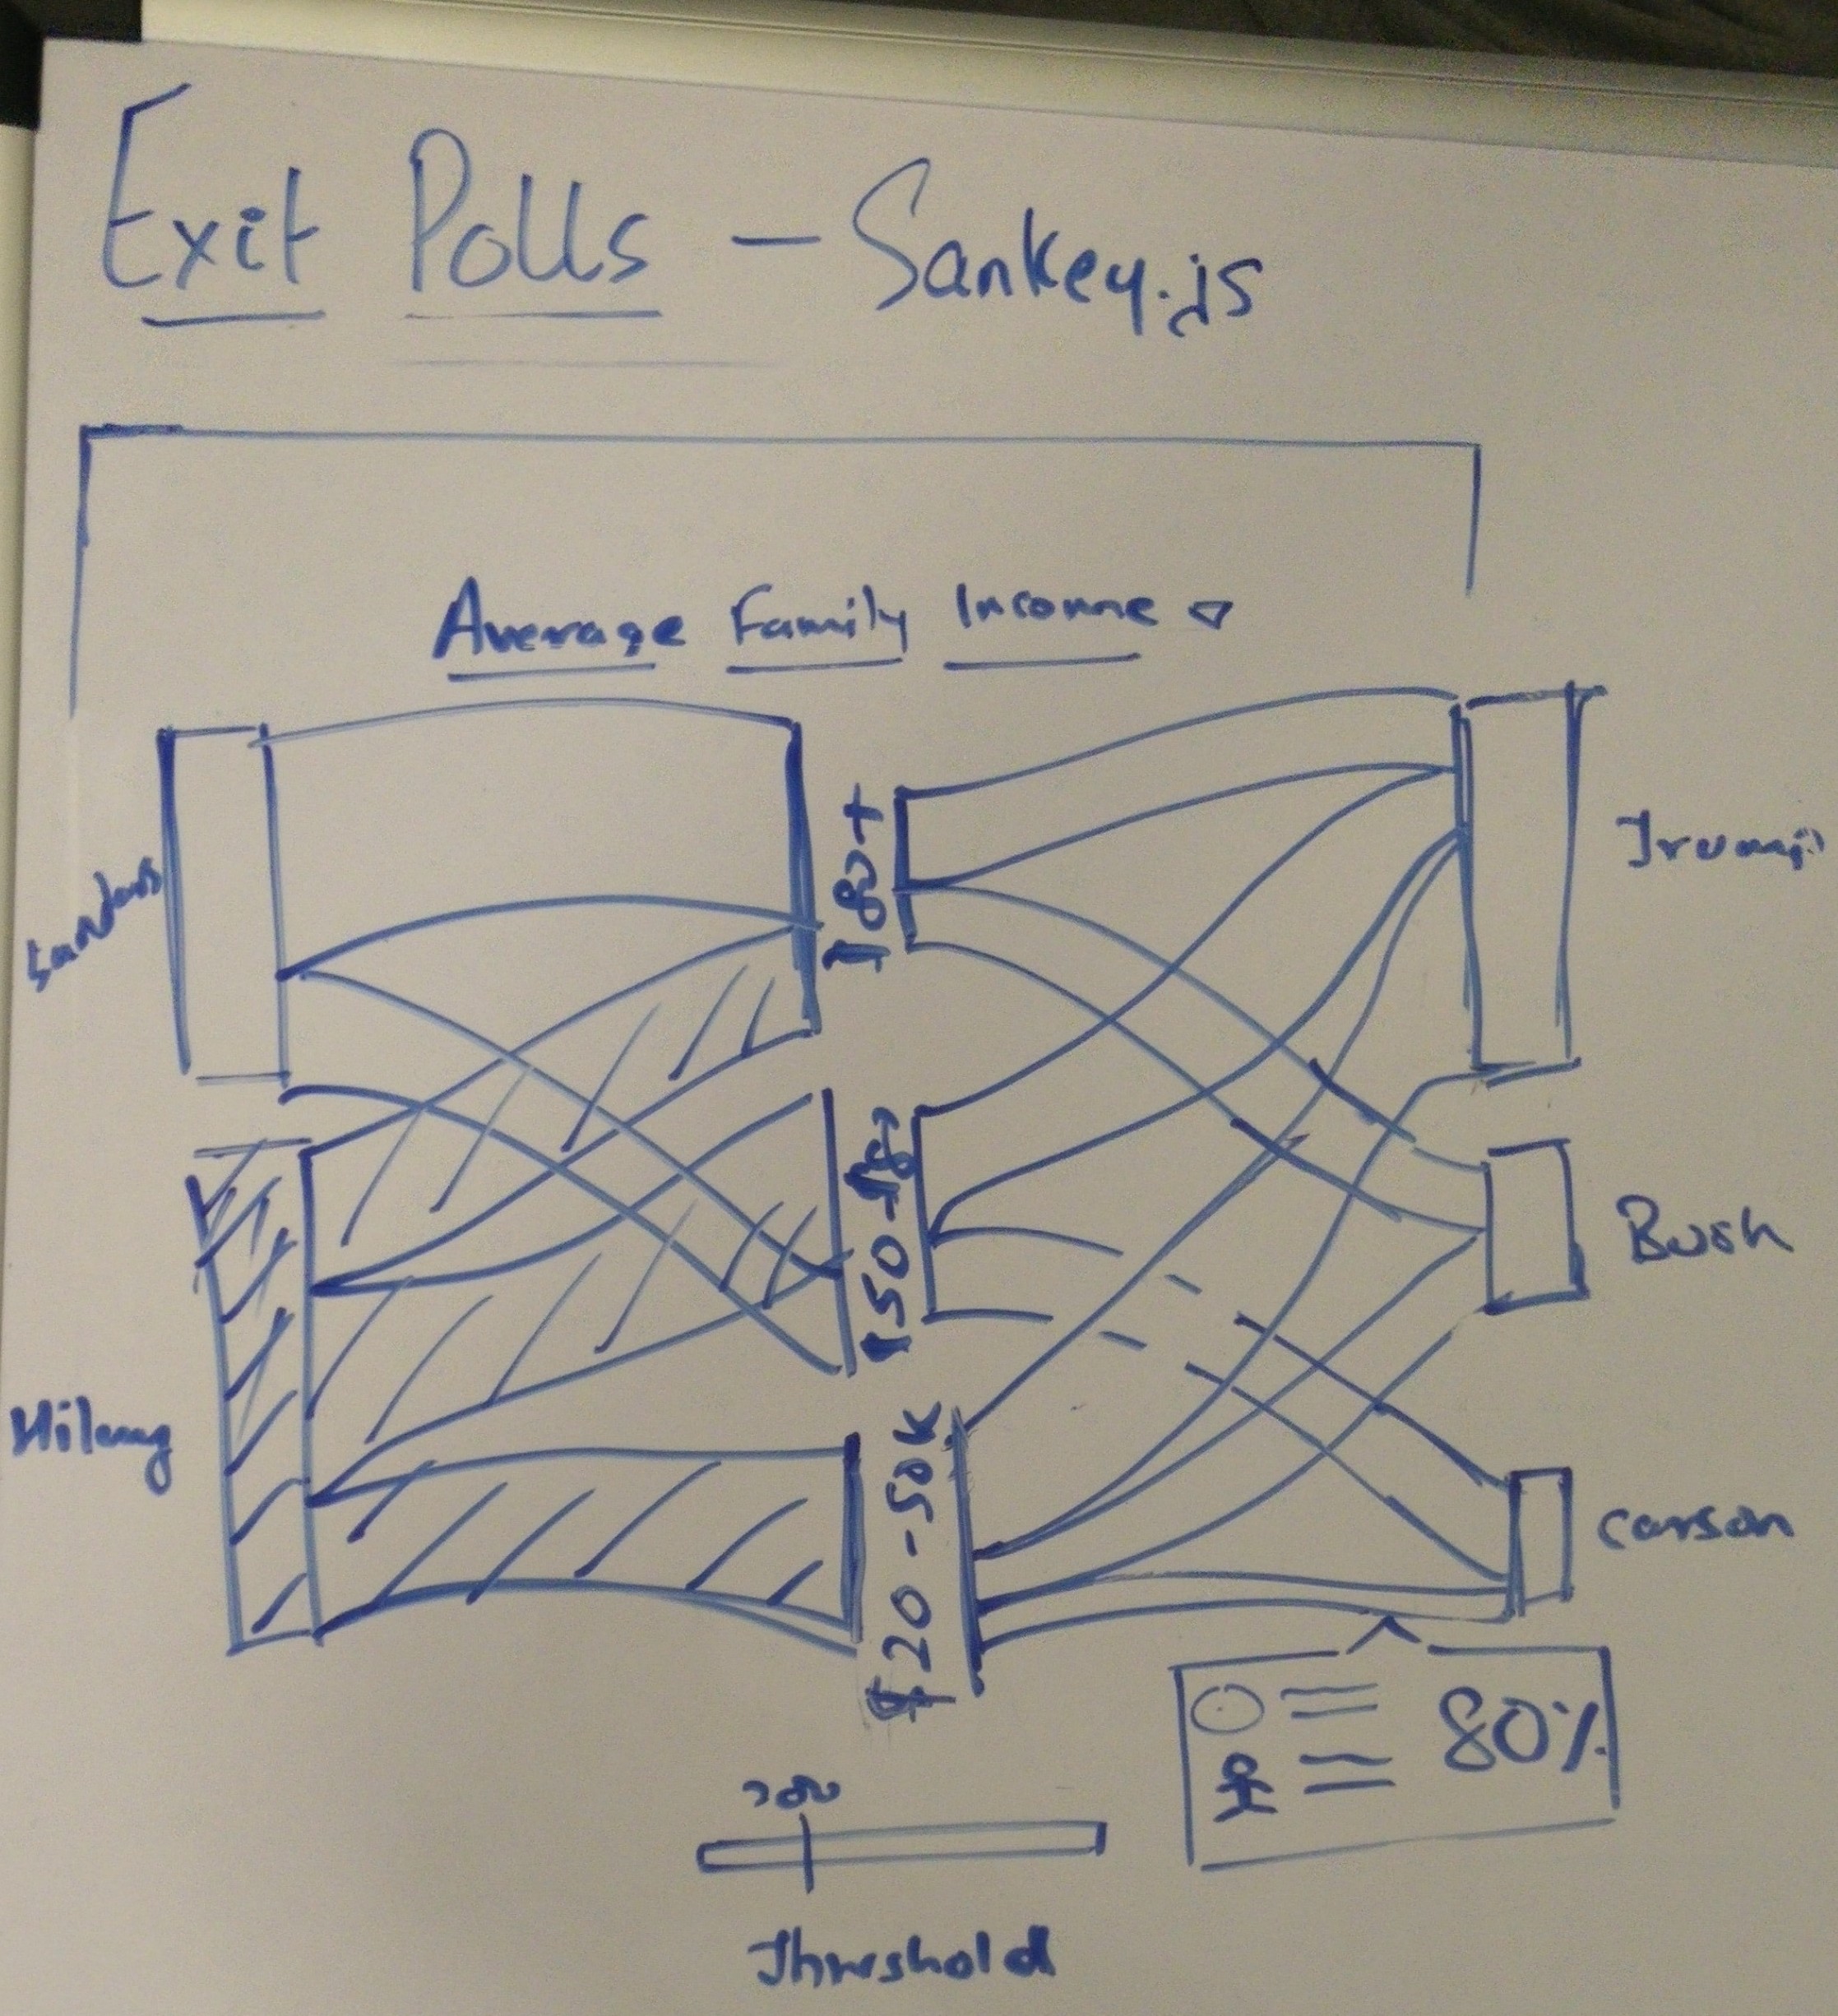 Exit Polls - Sankey.js
Average Family Income ▽
Sanders
Hilary
$80+
$50-$80
$20-50K
Trump
Bush
Carson
80%
Threshold